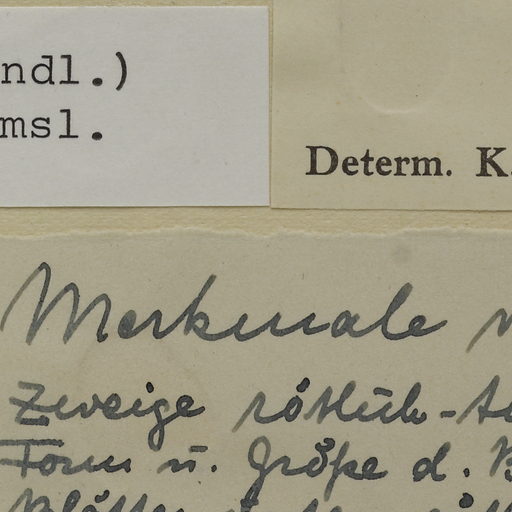 ndl.)
msl.
Determ. K.
Merkmale
Zweige rötlich-
Form u. Größe d. B
Blätter